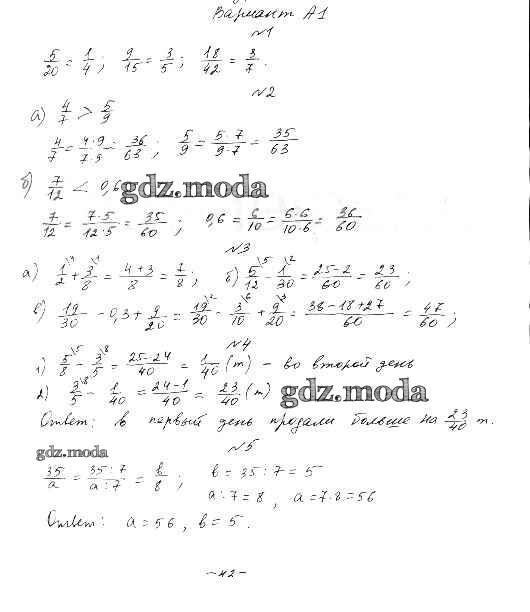 Вариант А1
№1
5/20 = 1/4; 9/15 = 3/5; 18/42 = 3/7.
№2
а) 4/7 > 5/9
4/7 = 4·9/7·9 = 36/63; 5/9 = 5·7/9·7 = 35/63
б) 7/12 < 0,6
gdz.moda
7/12 = 7·5/12·5 = 35/60; 0,6 = 6/10 = 6·6/10·6 = 36/60
№3
а) 1/2 + 3/8 = 4+3/8 = 7/8; б) 5/12 - 1/30 = 25-2/60 = 23/60;
в) 19/30 - 0,3 + 9/20 = 19/30 - 3/10 + 9/20 = 38-18+27/60 = 47/60;
№4
1) 5/8 - 3/5 = 25-24/40 = 1/40 (т) - во второй день
2) 3/5 - 1/40 = 24-1/40 = 23/40 (т)
gdz.moda
Ответ: в первый день продали больше на 23/40 т.
gdz.moda
№5
35/a = 35:7/a:7 = b/8; b = 35:7 = 5
a:7 = 8, a = 7·8 = 56
Ответ: a = 56, b = 5.
-42-